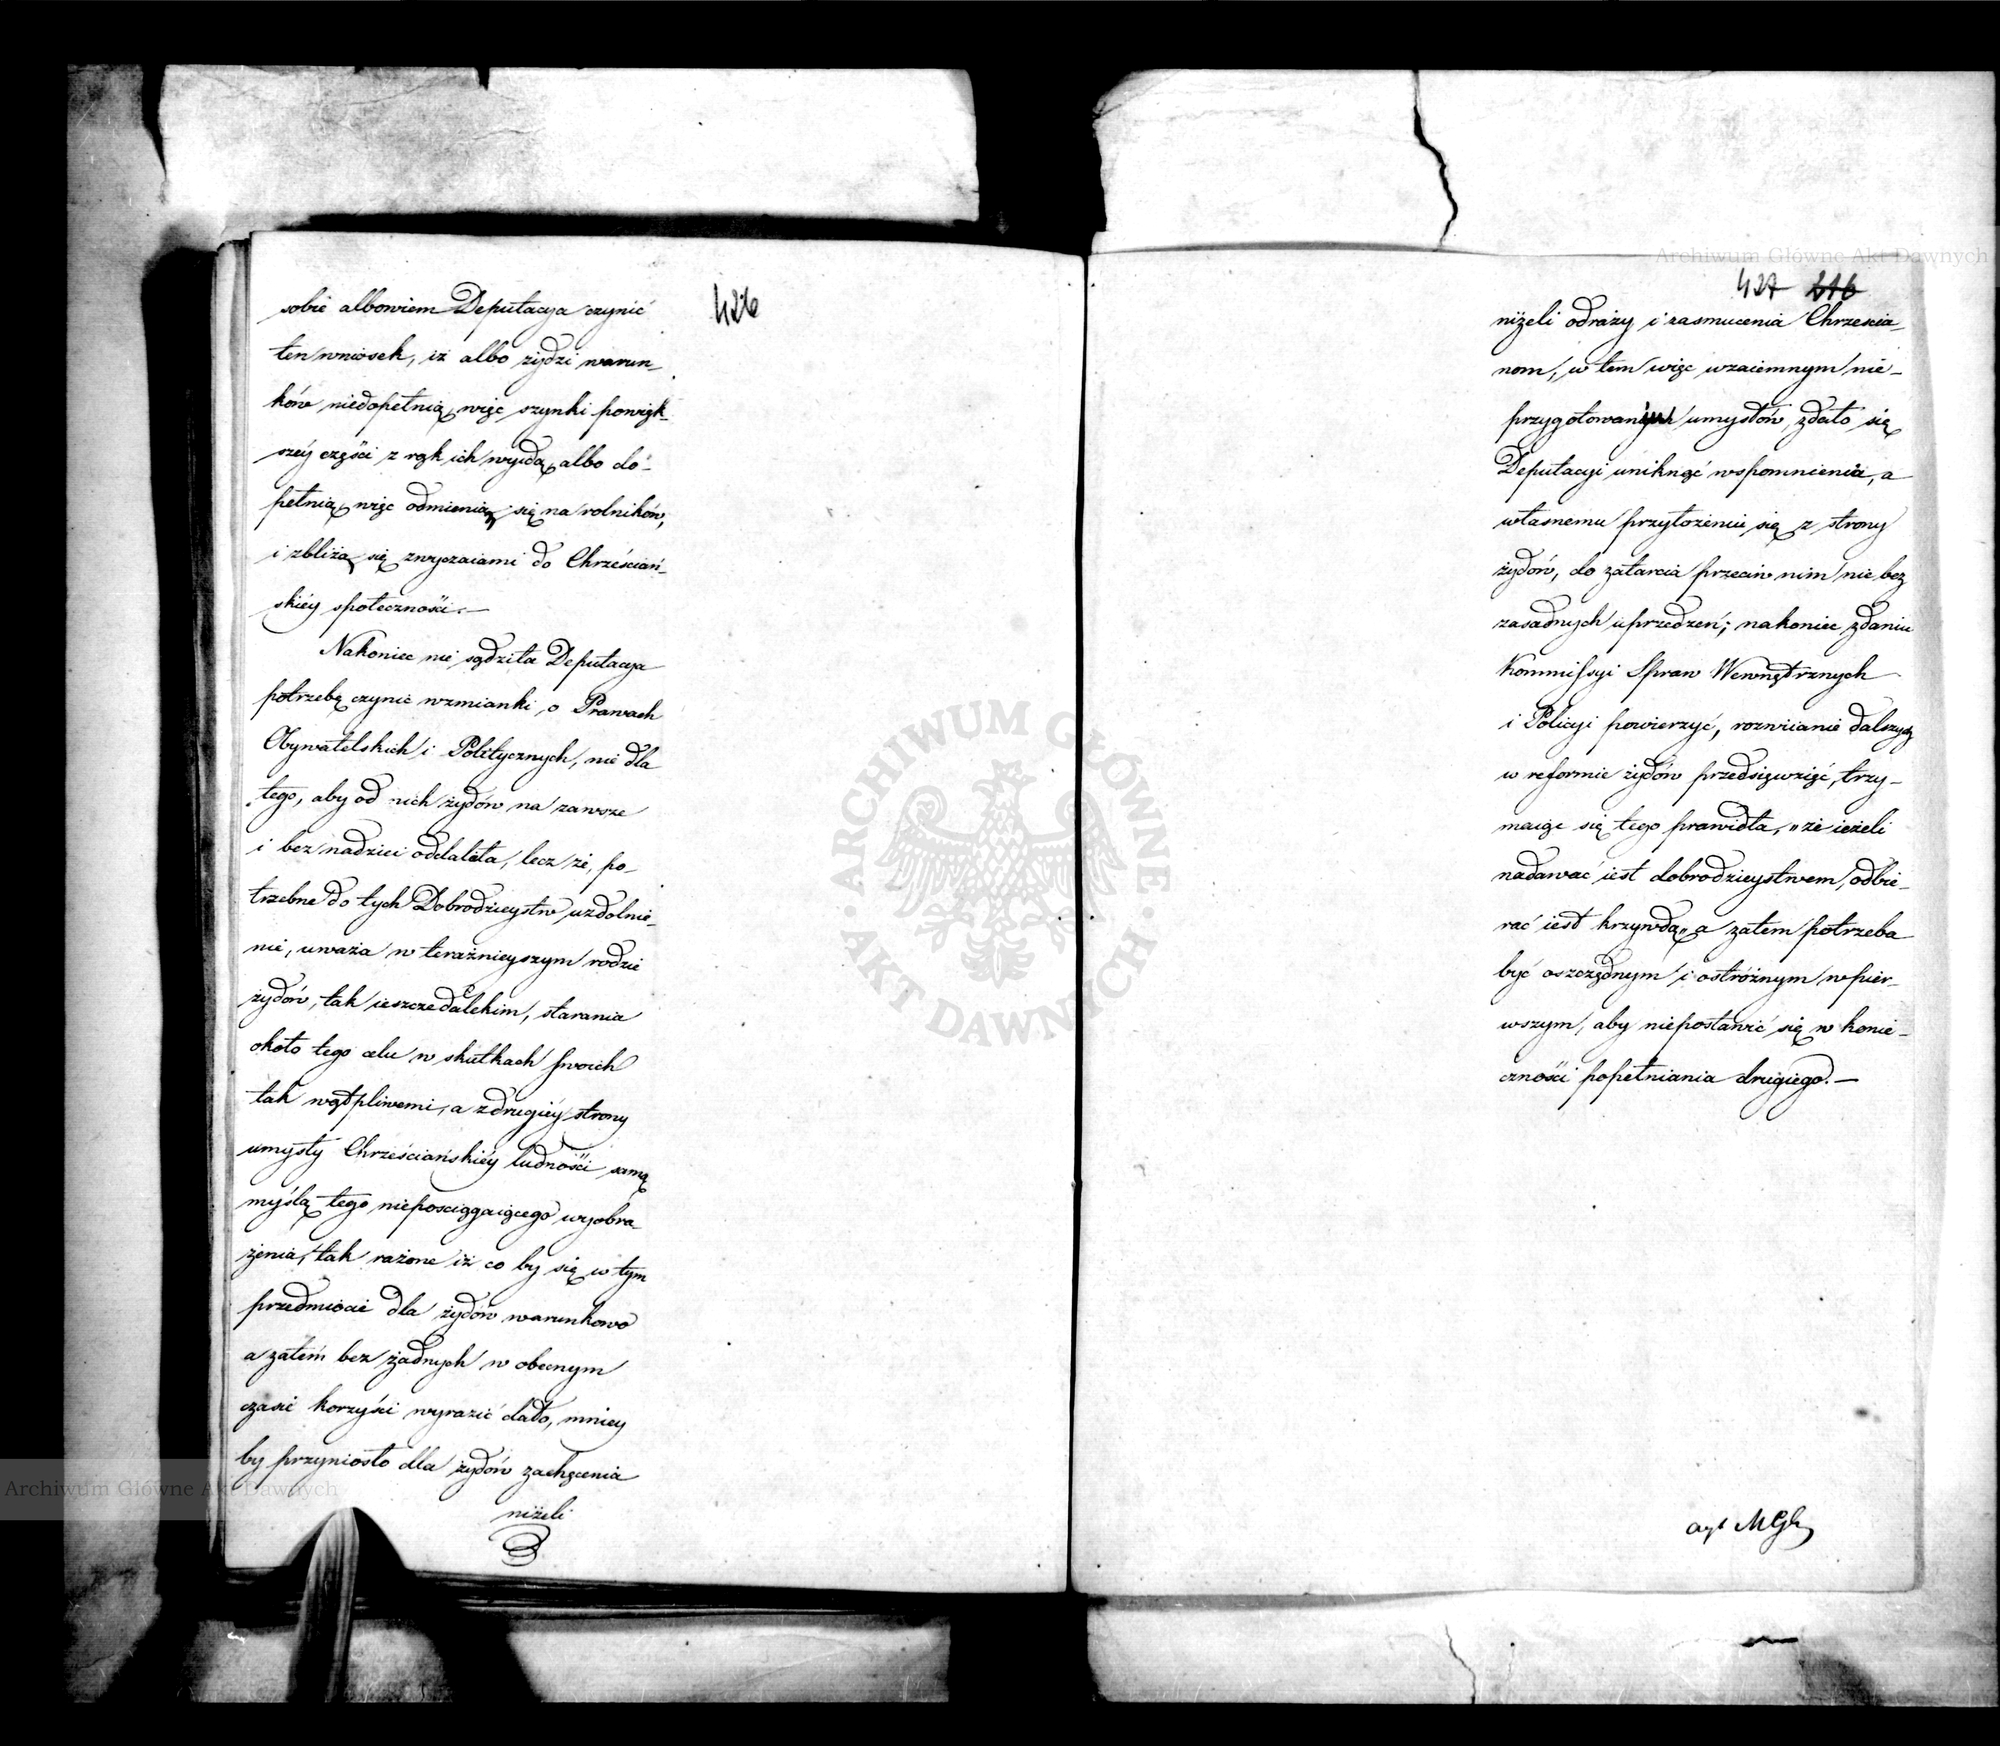 426
sobie albowiem Deputacya czynić
ten wniosek, iż albo żydzi warun-
ków niedopełnią, więc szynki powięk-
széy części z rąk ich wyidą, albo do-
pełnią, więc odmienią się na rolników,
i zbliżą się zwyczaiami do Chrześciań-
skiéy społeczności. —
Nakoniec nie sądziła Deputacya
potrzebę czynić wzmianki, o Prawach
Obywatelskich i Politycznych, nie dla
tego, aby od nich żydów na zawsze
i bez nadziei oddalała, lecz że, po-
trzebne do tych Dobrodzieystw uzdolnie-
nie, uważa w teraźnieyszym rodzie
żydów, tak ieszcze dalekim, starania
około tego celu w skutkach swoich
tak wątpliwemi, a z drugiéy strony
umysły Chrześciańskiéy ludności samą
myślą tego nieposciągaiącego wyobra-
żenia, tak rażone iż co by się w tym
przedmiocie dla żydów warunkowo
a zatém bez żadnych w obecnym
czasie korzyści wyrazić dało, mniey
by przyniosło dla żydów zachęcenia
niżeli
427 216
niżeli odrazy i zasmucenia Chrzescia-
nom, w tem więc wzaiemnym nie-
przygotowaniu umysłów, zdało się
Deputacyi uniknąć wspomnienia, a
własnemu przyłożeniu się z strony
żydów, do zatarcia przeciw nim nie bez
zasadnych uprzedzeń; nakoniec zdaniu
Kommissyi Spraw Wewnętrznych
i Policyi powierzyć, rozwicanie dalszych
w reformie żydów przedsięwzięć, trzy-
maiąc się tego prawidła, „że ieżeli
nadawać iest dobrodzieystwem, odbie-
rać iest krzywdą" a zatem potrzeba
być oszczędnym i ostróżnym w pier-
wszym, aby niepostawić się w konie-
czności popełniania drugiego. —
Archiwum Główne Akt Dawnych
Archiwum Główne Akt Dawnych
ARCHIWUM GŁÓWNE · AKT DAWNYCH ·